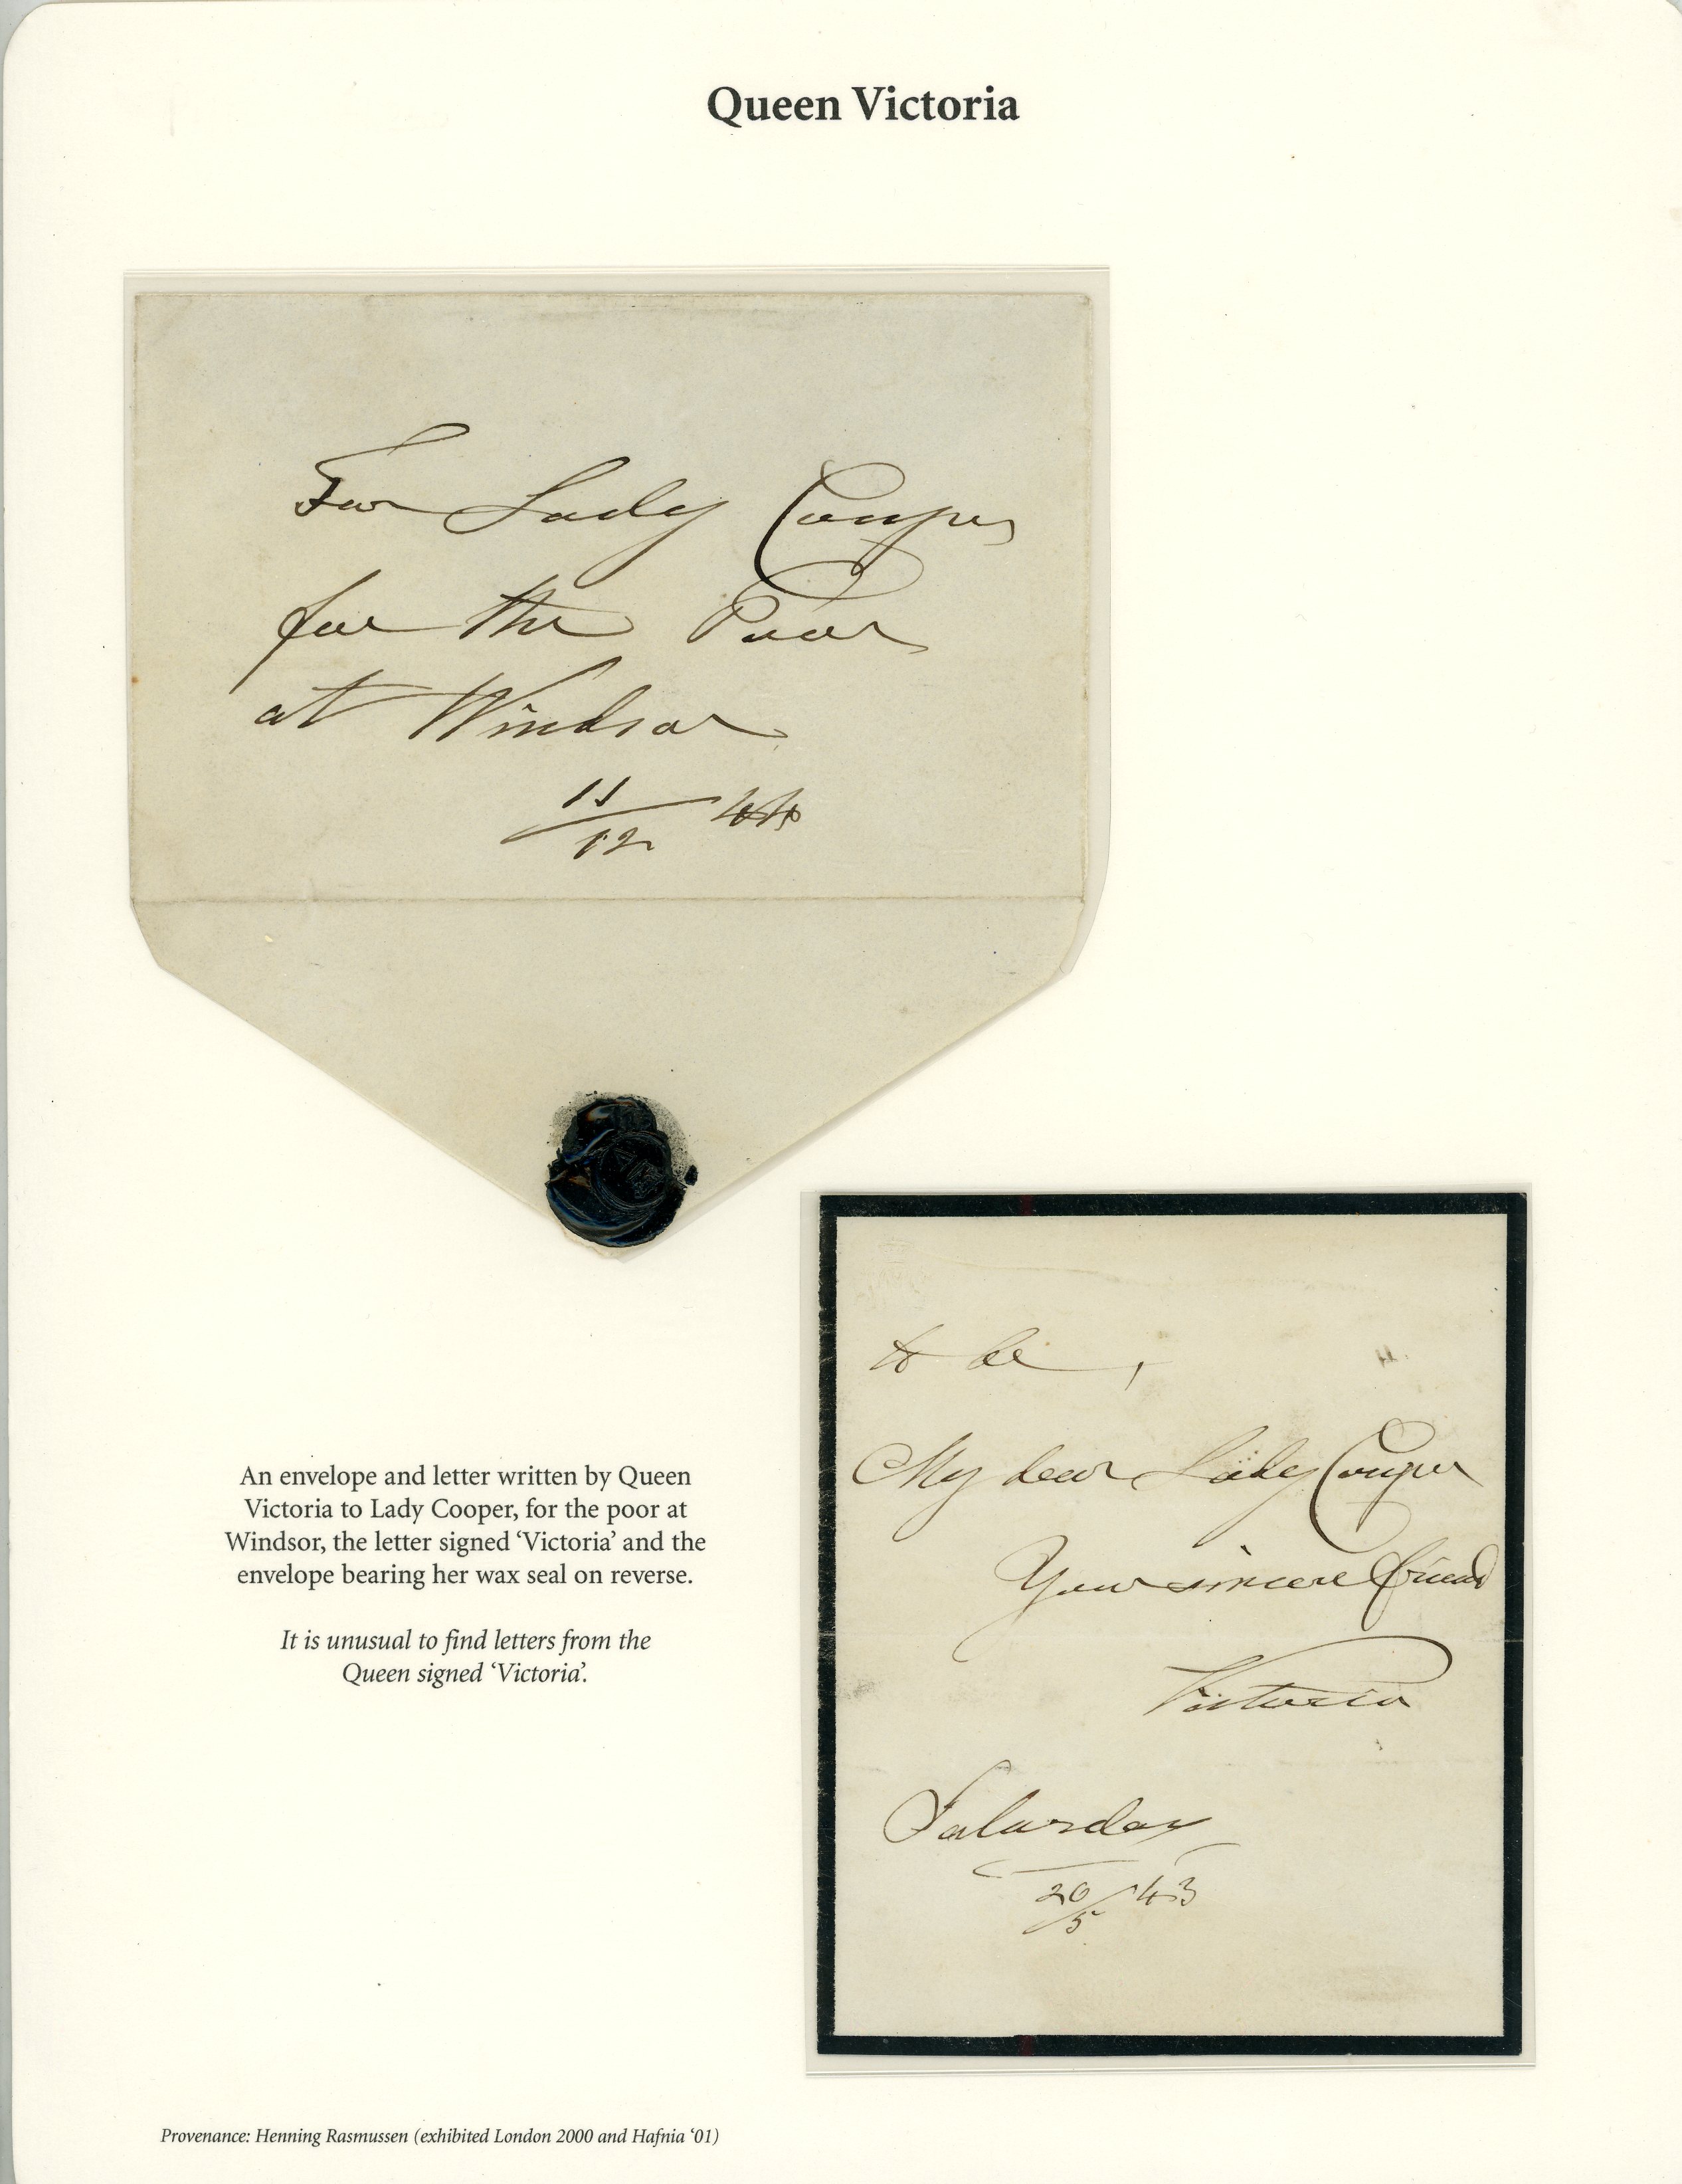 Queen Victoria
For Lady Couper
for the Poor
at Windsor
11/12 44
to be,
My dear Lady Couper
Your sincere friend
Victoria
Saturday
20/5 '43
An envelope and letter written by Queen
Victoria to Lady Cooper, for the poor at
Windsor, the letter signed ‘Victoria’ and the
envelope bearing her wax seal on reverse.
It is unusual to find letters from the
Queen signed ‘Victoria’.
Provenance: Henning Rasmussen (exhibited London 2000 and Hafnia ‘01)